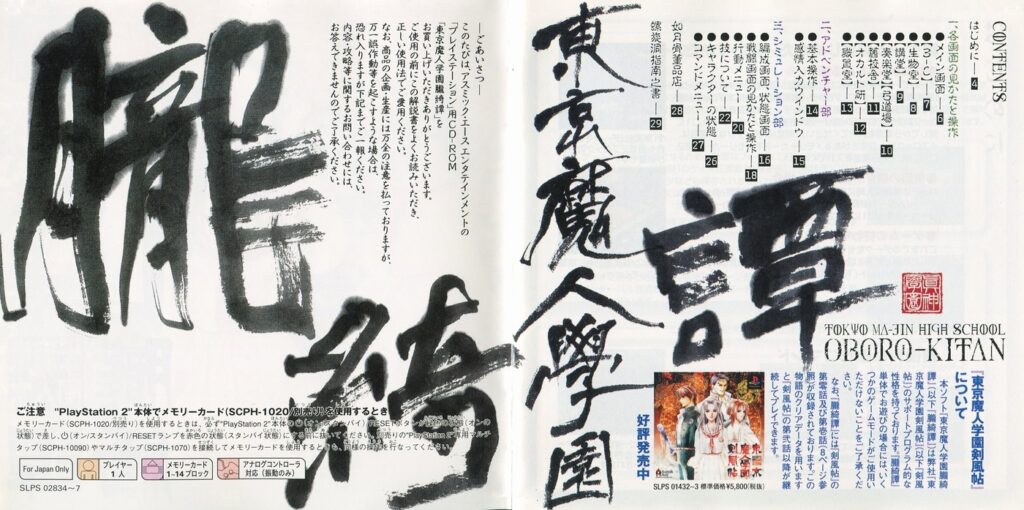 CONTENTS
はじめに ― 4
一、各画面の見かたと操作
●メイン画面 ― 6
●【3-C】 ― 7
●【生物室】 ― 8
●【講堂】 ― 9
●【奏楽堂】【弓道場】 ― 10
●【旧校舎】 ― 11
●【オカルト研】 ― 12
●【職員室】 ― 13
二、アドベンチャー部
●基本操作 ― 14
●感情入力ウィンドウ ― 15
三、シミュレーション部
●編成画面、状態画面 ― 16
●戦闘画面の見かたと操作 ― 18
●行動メニュー ― 20
●技について ― 22
●キャラクターの状態 ― 26
●コマンドメニュー ― 27
如月骨董品店 ― 28
指南之書 ― 29
譚
真神學園
TOKYO MA-JIN HIGH SCHOOL
OBORO-KITAN
『東京魔人学園剣風帖』
について
本ソフト『東京魔人学園朧綺
譚』（以下『朧綺譚』）は弊社『東
京魔人学園剣風帖』（以下『剣風
帖』）のサポートプログラム的な
性格を持っております。『朧綺譚』
単体でお遊びの場合には、いく
つかのゲームモードがご使用い
ただけないことをご了承くだ
さい。
なお、『朧綺譚』には、『剣風帖』の
第零話及び第壱話（8ページ参
照）が収録されております。この
物語のクリアデータを用います
と『剣風帖』の第弐話以降が継
続してプレイできます。
東京魔人學園剣風帖
好評発売中
SLPS 01432~3 標準価格¥5,800(税抜)
東京魔人學園
朧
綺
―ごあいさつ―
このたびは、アスミック・エース エンタテインメントの
「プレイステーション」用CD-ROM
「東京魔人学園朧綺譚」を
お買い上げいただきありがとうございます。
ご使用の前にこの解説書をよくお読みいただき、
正しい使用法でご愛用ください。
なお、商品の企画・生産には万全の注意を払っておりますが、
万一誤作動等を起こすような場合は、
恐れ入りますが下記までご一報ください。
内容・攻略等に関するお問い合わせには、
お答えできませんのでご了承ください。
ご注意 "PlayStation 2"本体でメモリーカード(SCPH-1020/別売り)を使用するとき
メモリーカード(SCPH-1020/別売り)を使用するときは、必ず"PlayStation 2"本体の⏻(オン/スタンバイ)/RESETボタンが緑の状態(オンの
状態)で差し、⏻(オン/スタンバイ)/RESETランプを赤色の状態(スタンバイ状態)にする前に抜いてください。別売りの"PlayStation 2"専用マルチ
タップ(SCPH-10090)やマルチタップ(SCPH-1070)を接続してメモリーカードを使用するときも、同様の操作を行なってください。
For Japan Only
プレイヤー
1人
メモリーカード
1~14ブロック
アナログコントローラ
対応(振動のみ)
SLPS 02834~7